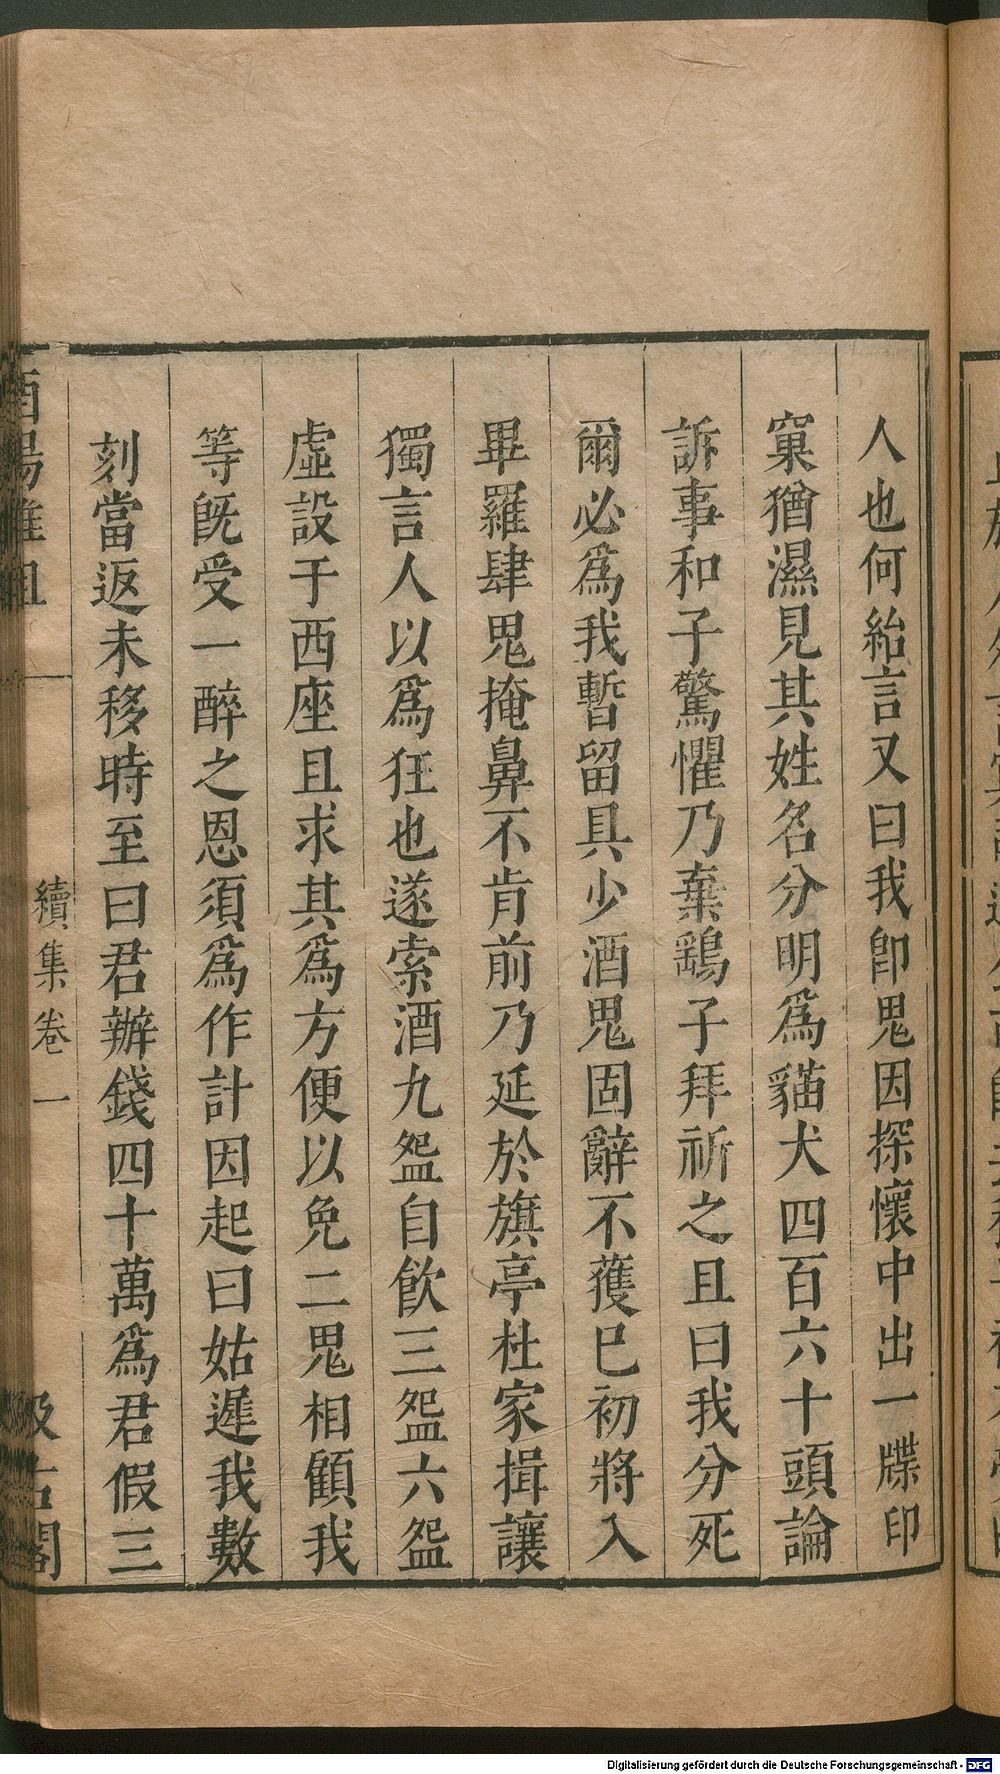 人也何紿言又曰我卽鬼因探懷中出一牒印
窠猶濕見其姓名分明爲貓犬四百六十頭論
訴事和子驚懼乃棄鷂子拜祈之且曰我分死
爾必爲我暫留具少酒鬼固辭不獲已初將入
畢羅肆鬼掩鼻不肯前乃延於旗亭杜家揖讓
獨言人以爲狂也遂索酒九盌自飲三盌六盌
虛設于西座且求其爲方便以免二鬼相顧我
等旣受一醉之恩須爲作計因起曰姑遲我數
刻當返未移時至曰君辦錢四十萬爲君假三
酉陽雜俎
續集卷一
汲古閣
Digitalisierung gefördert durch die Deutsche Forschungsgemeinschaft - DFG